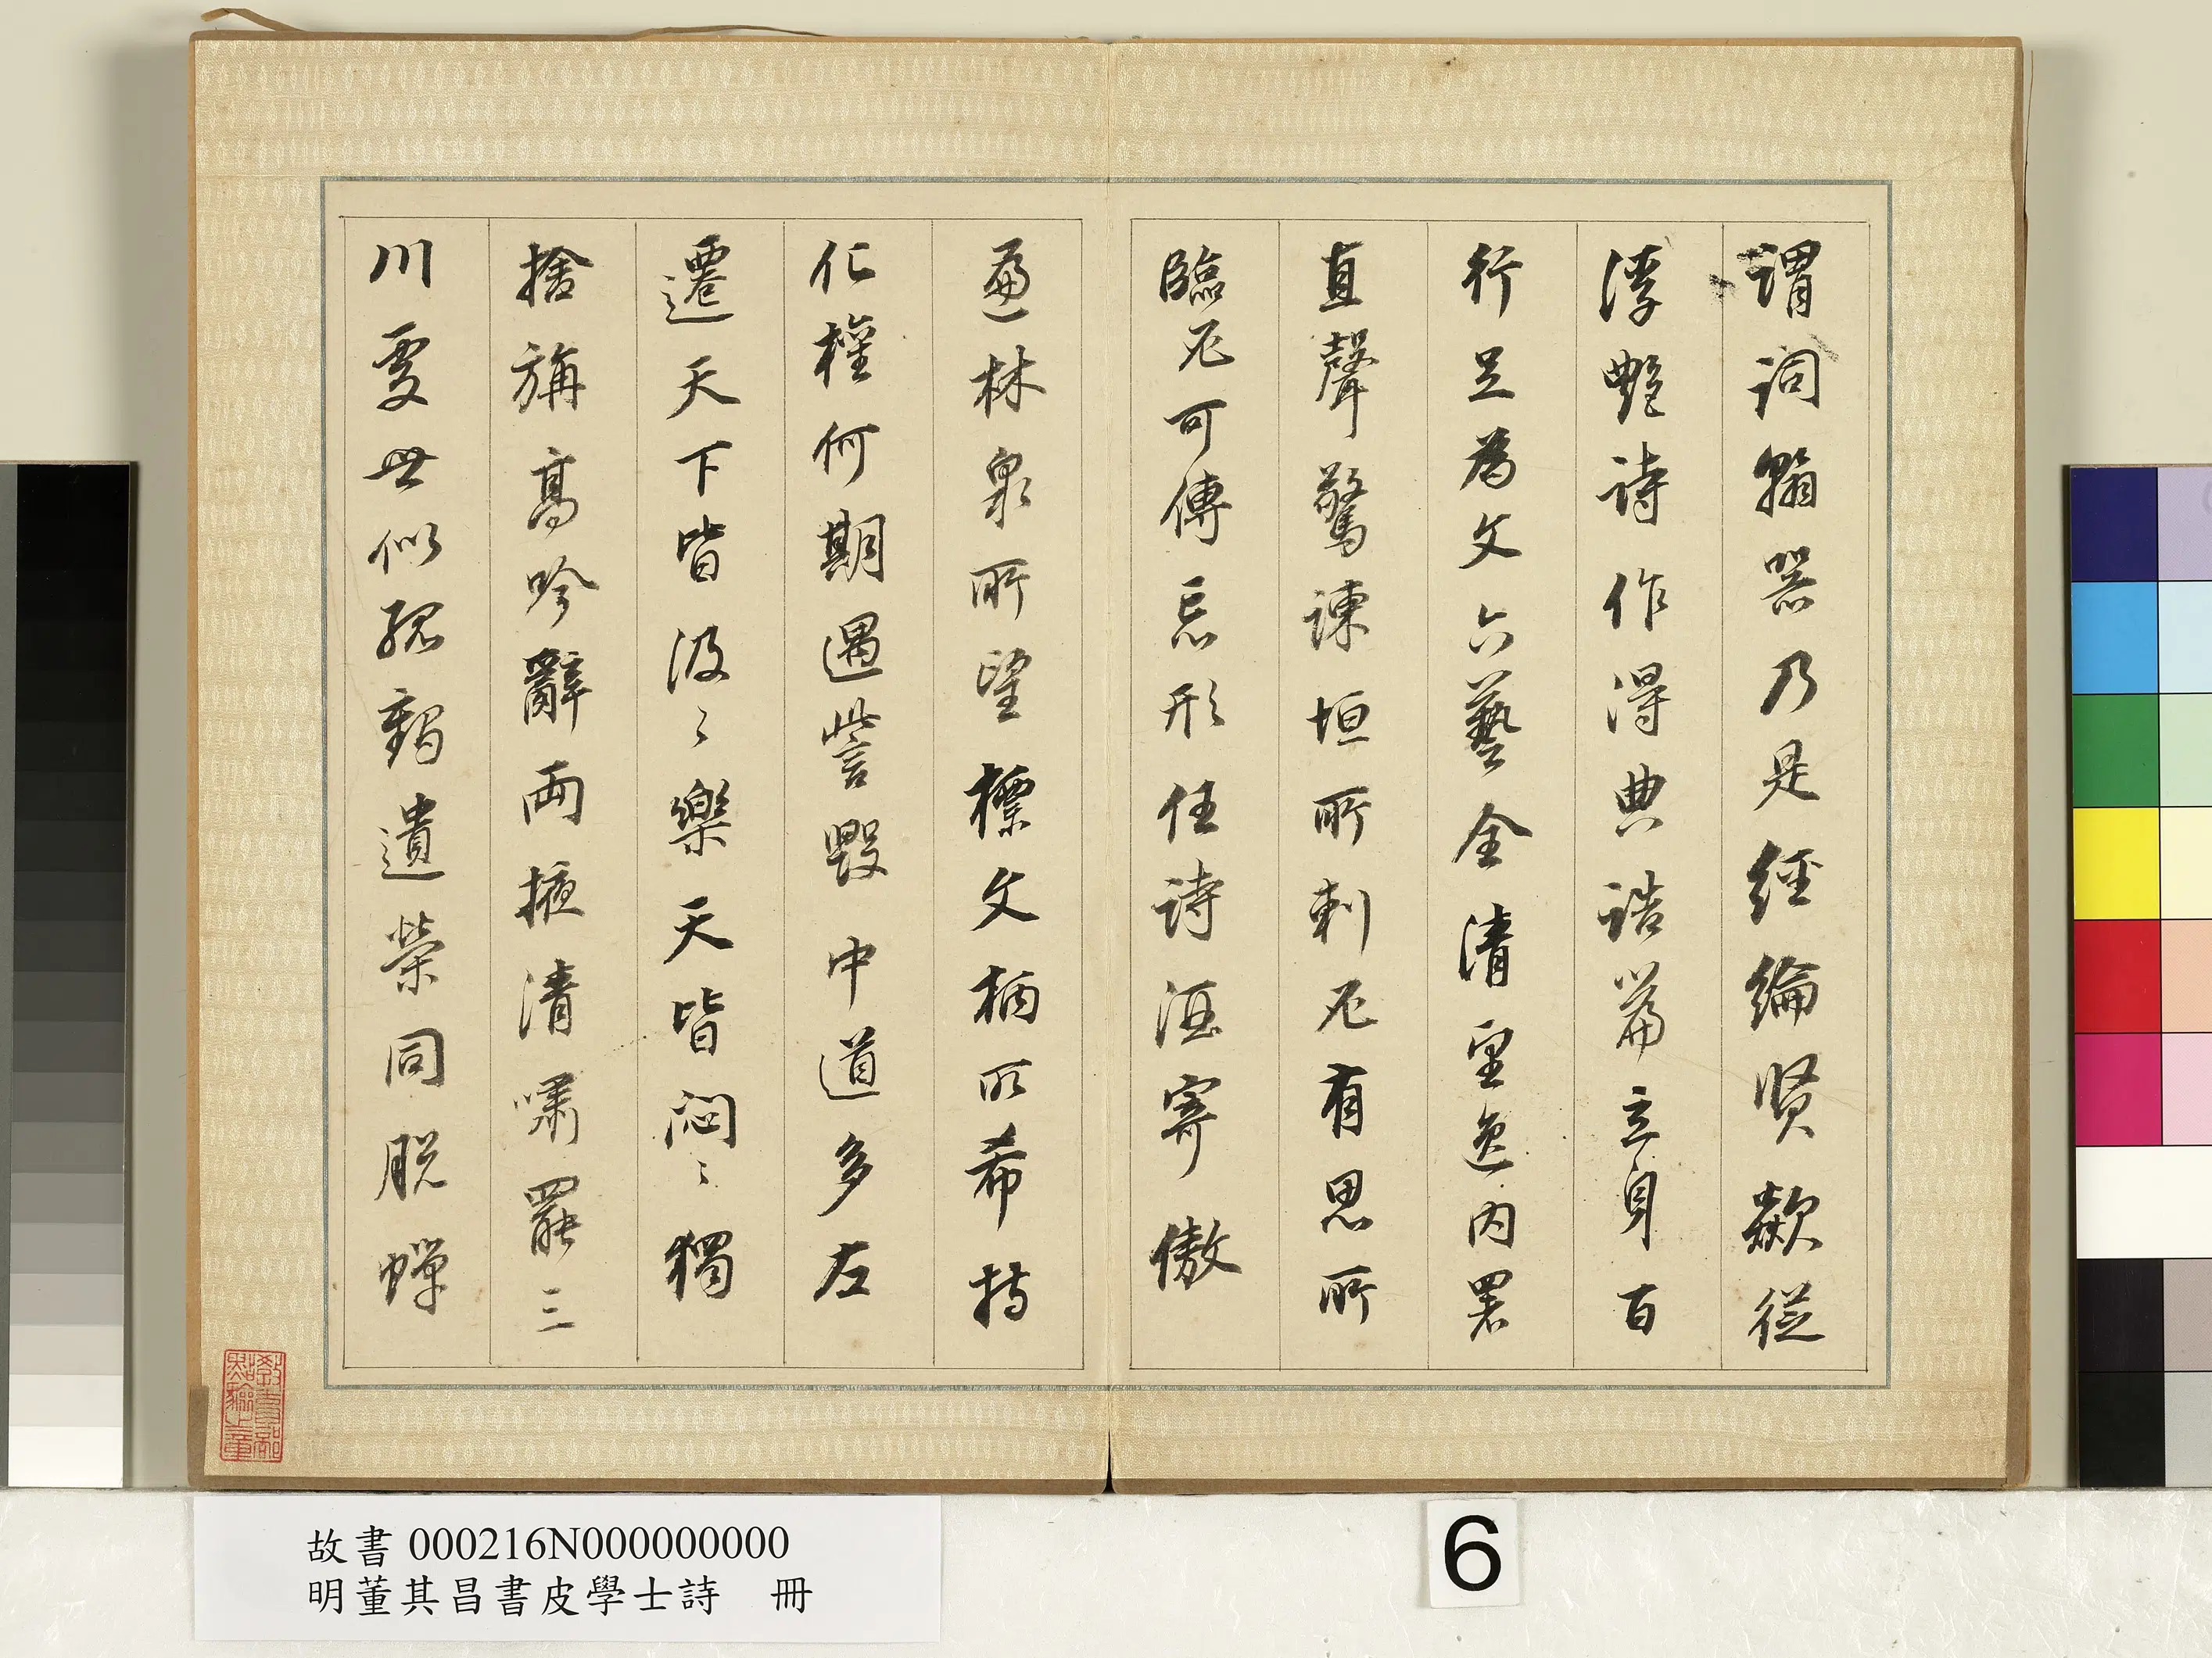 謂詞翰器乃是經綸賢欻從
浮艷詩作得典誥篇立身百
行足為文六藝全清望逸內署
直聲驚諫垣所刺必有思所
臨必可傳忘形任詩酒寄傲
遍林泉所望標文柄所希持
化權何期遇訾毀中道多左
遷天下皆汲〻樂天皆悶〻獨
捨旃高吟辭兩掖清嘯罷三
川處世似孤鶴遺榮同脫蟬
教育部
點驗之章
故書000216N000000000
明董其昌書皮學士詩 冊
6